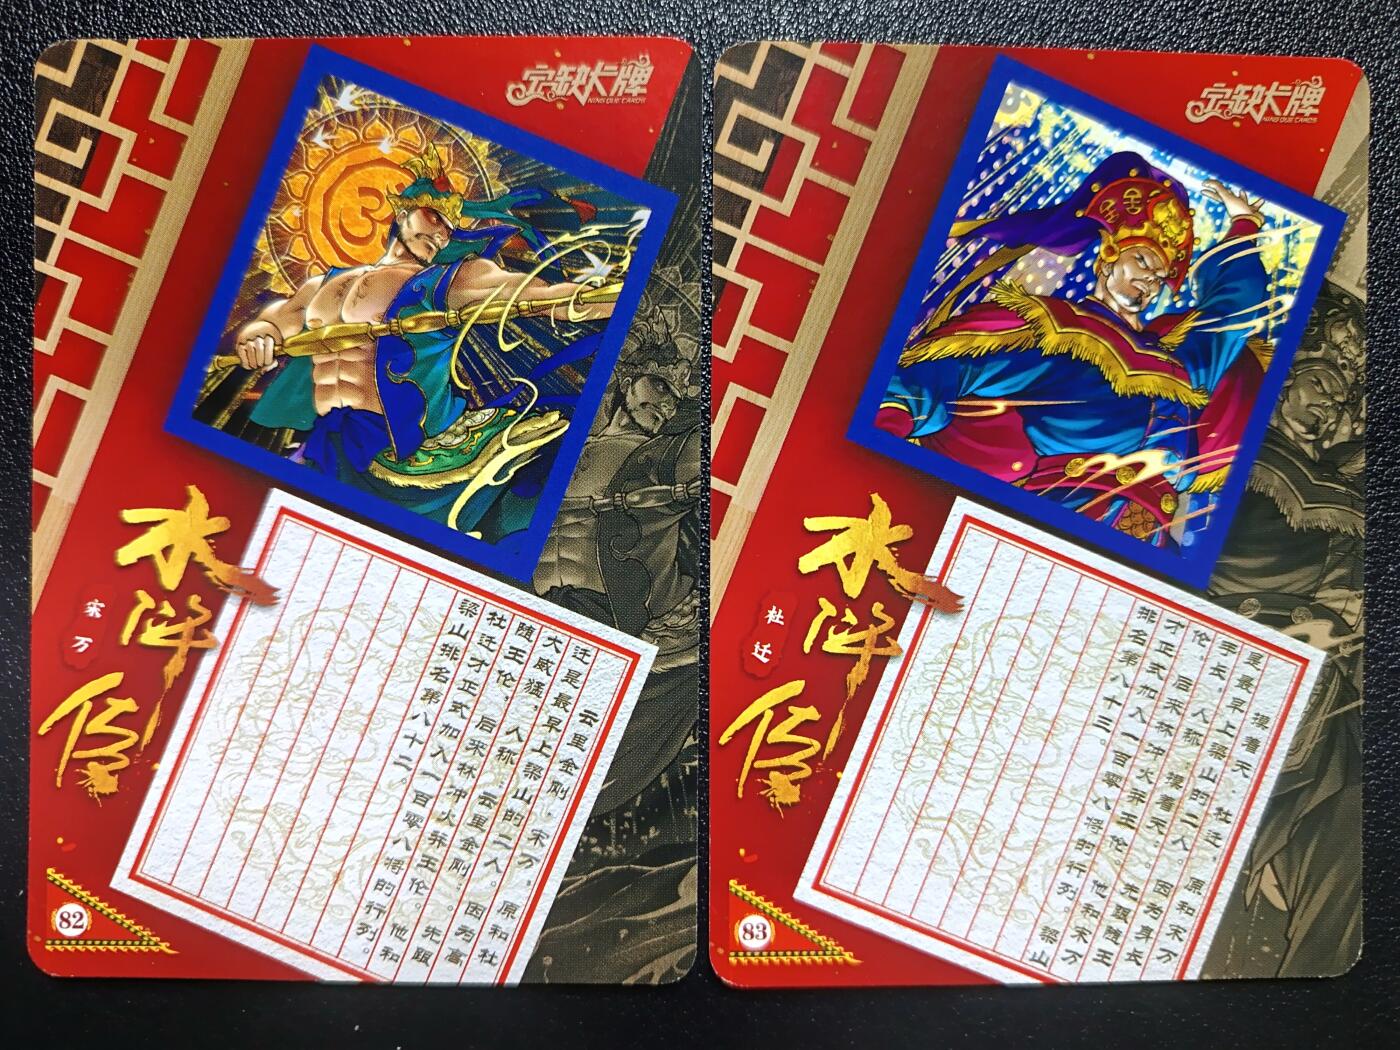 宁缺卡牌
NING QUE CARDS
水浒传
宋万
云里金刚，宋万，原和杜
迁是最早上梁山的二人。因为高
大威猛，人称：云里金刚：。先跟
随王伦，后来林冲火并王伦。他和
杜迁才正式加入一百零八将的行列。
梁山排名第八十二。
82
宁缺卡牌
NING QUE CARDS
水浒传
杜迁
摸着天，杜迁，原和宋万
是最早上梁山的二人。因为身长
手长，人称：摸着天：。先跟随王
伦后来林冲火并王伦，他和宋万
才正式加入一百零八将的行列。梁山
排名第八十三。
83